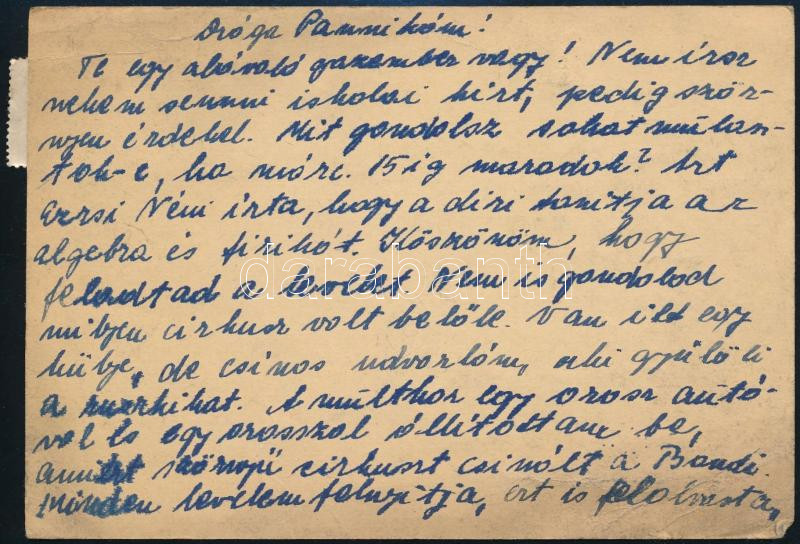 Dróga Pannikám!
Te egy alávaló gazember vagy! Nem írsz
nekem semmi iskolai hirt, pedig ször-
nyen érdekel. Mit gondolsz sokat mulasz-
tok-e, ha márc. 15ig maradok? Azt
Erzsi Néni írta, hogy a diri tanitja az
algebra és fizikát. Köszönöm, hogy
feladtad a levelet Nem is gondolod
milyen cirkusz volt belőle. Van itt egy
hülye, de csinos udvarlóm, aki gyülöli
a ruszkikat. A multkor egy orosz autó-
val és egy orosszal állitottam be,
amiért szörnyü cirkuszt csinált a Bandi.
Minden levelem felnyitja, ezt is elolvasta,
darabanth